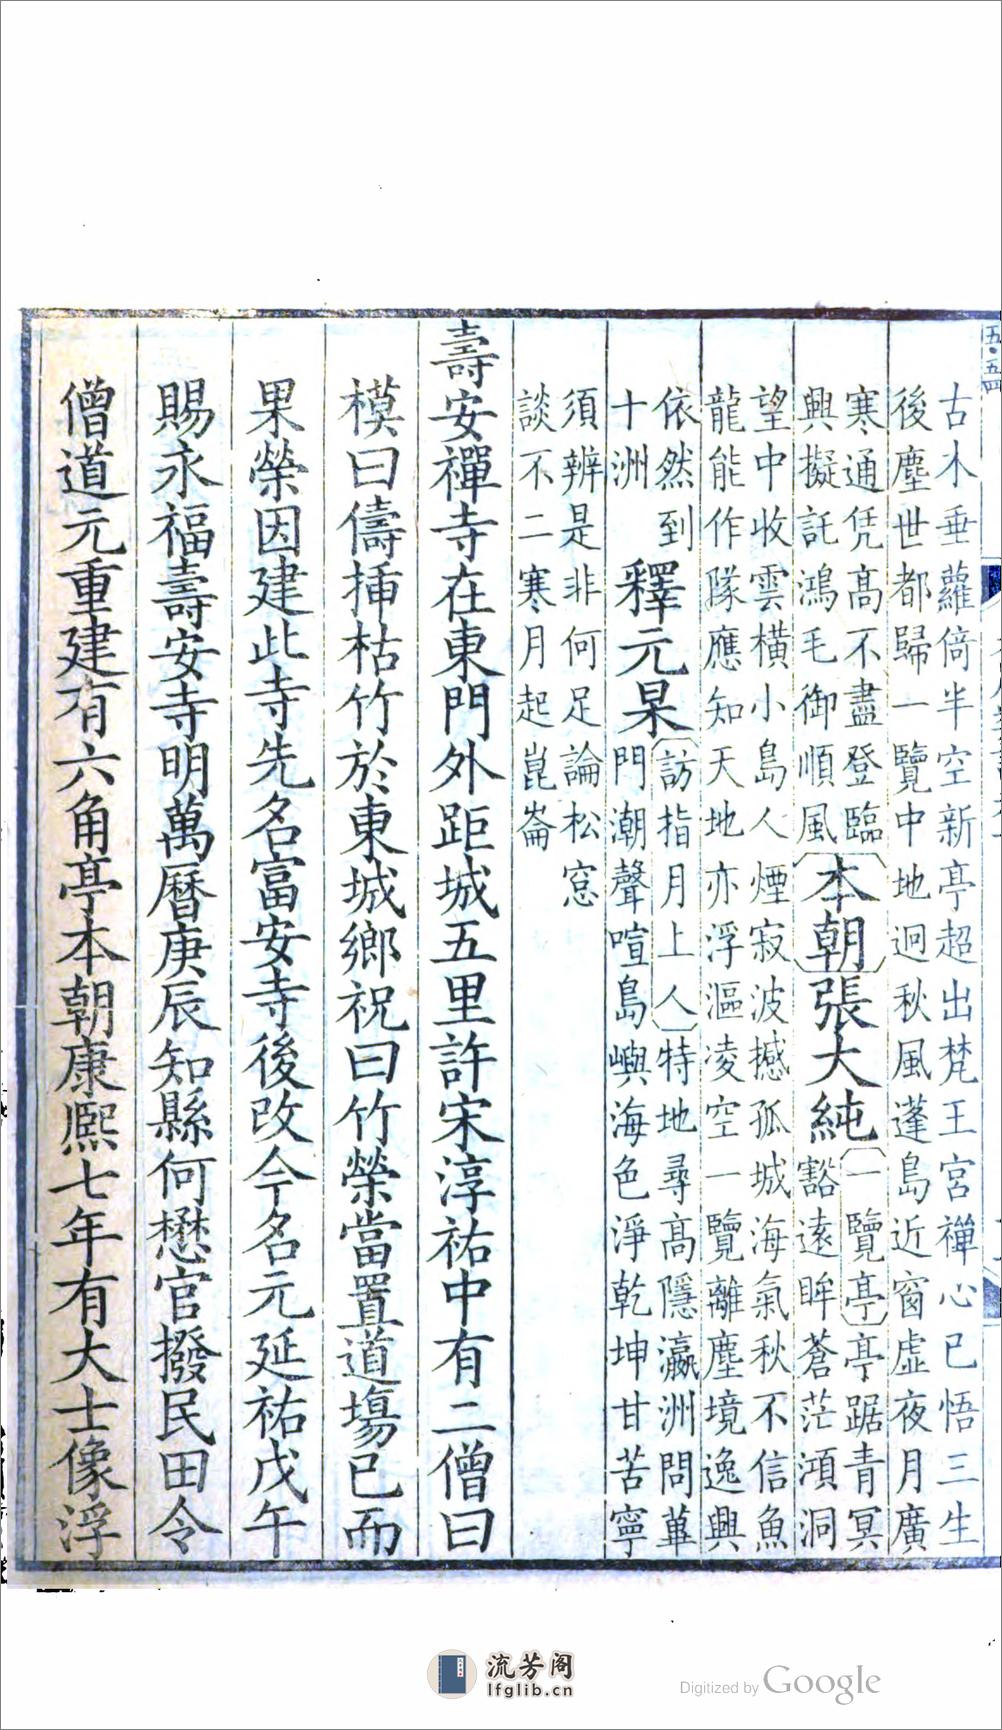 五·五四
古木垂蘿倚半空新亭超出梵王宮禪心已悟三生
後塵世都歸一覽中地迥秋風蓬島近窗虛夜月廣
寒通凭高不盡登臨
興擬託鴻毛御順風
本朝張大純
一覽亭亭踞青冥
豁遠眸蒼茫澒洞
望中收雲橫小島人煙寂波撼孤城海氣秋不信魚
龍能作隊應知天地亦浮漚凌空一覽離塵境逸興
依然到
十洲
釋元杲
訪指月上人特地尋高隱瀛洲問華
門潮聲喧島嶼海色淨乾坤甘苦寧
須辨是非何足論松窓
談不二寒月起崑崙
壽安禪寺在東門外距城五里許宋淳祐中有二僧曰
模曰儔揷枯竹於東城鄉祝曰竹榮當置道場已而
果榮因建此寺先名富安寺後改今名元延祐戊午
賜永福壽安寺明萬曆庚辰知縣何懋官撥民田令
僧道元重建有六角亭本朝康熙七年有大士像浮
流芳阁
lfglib.cn
Digitized by Google